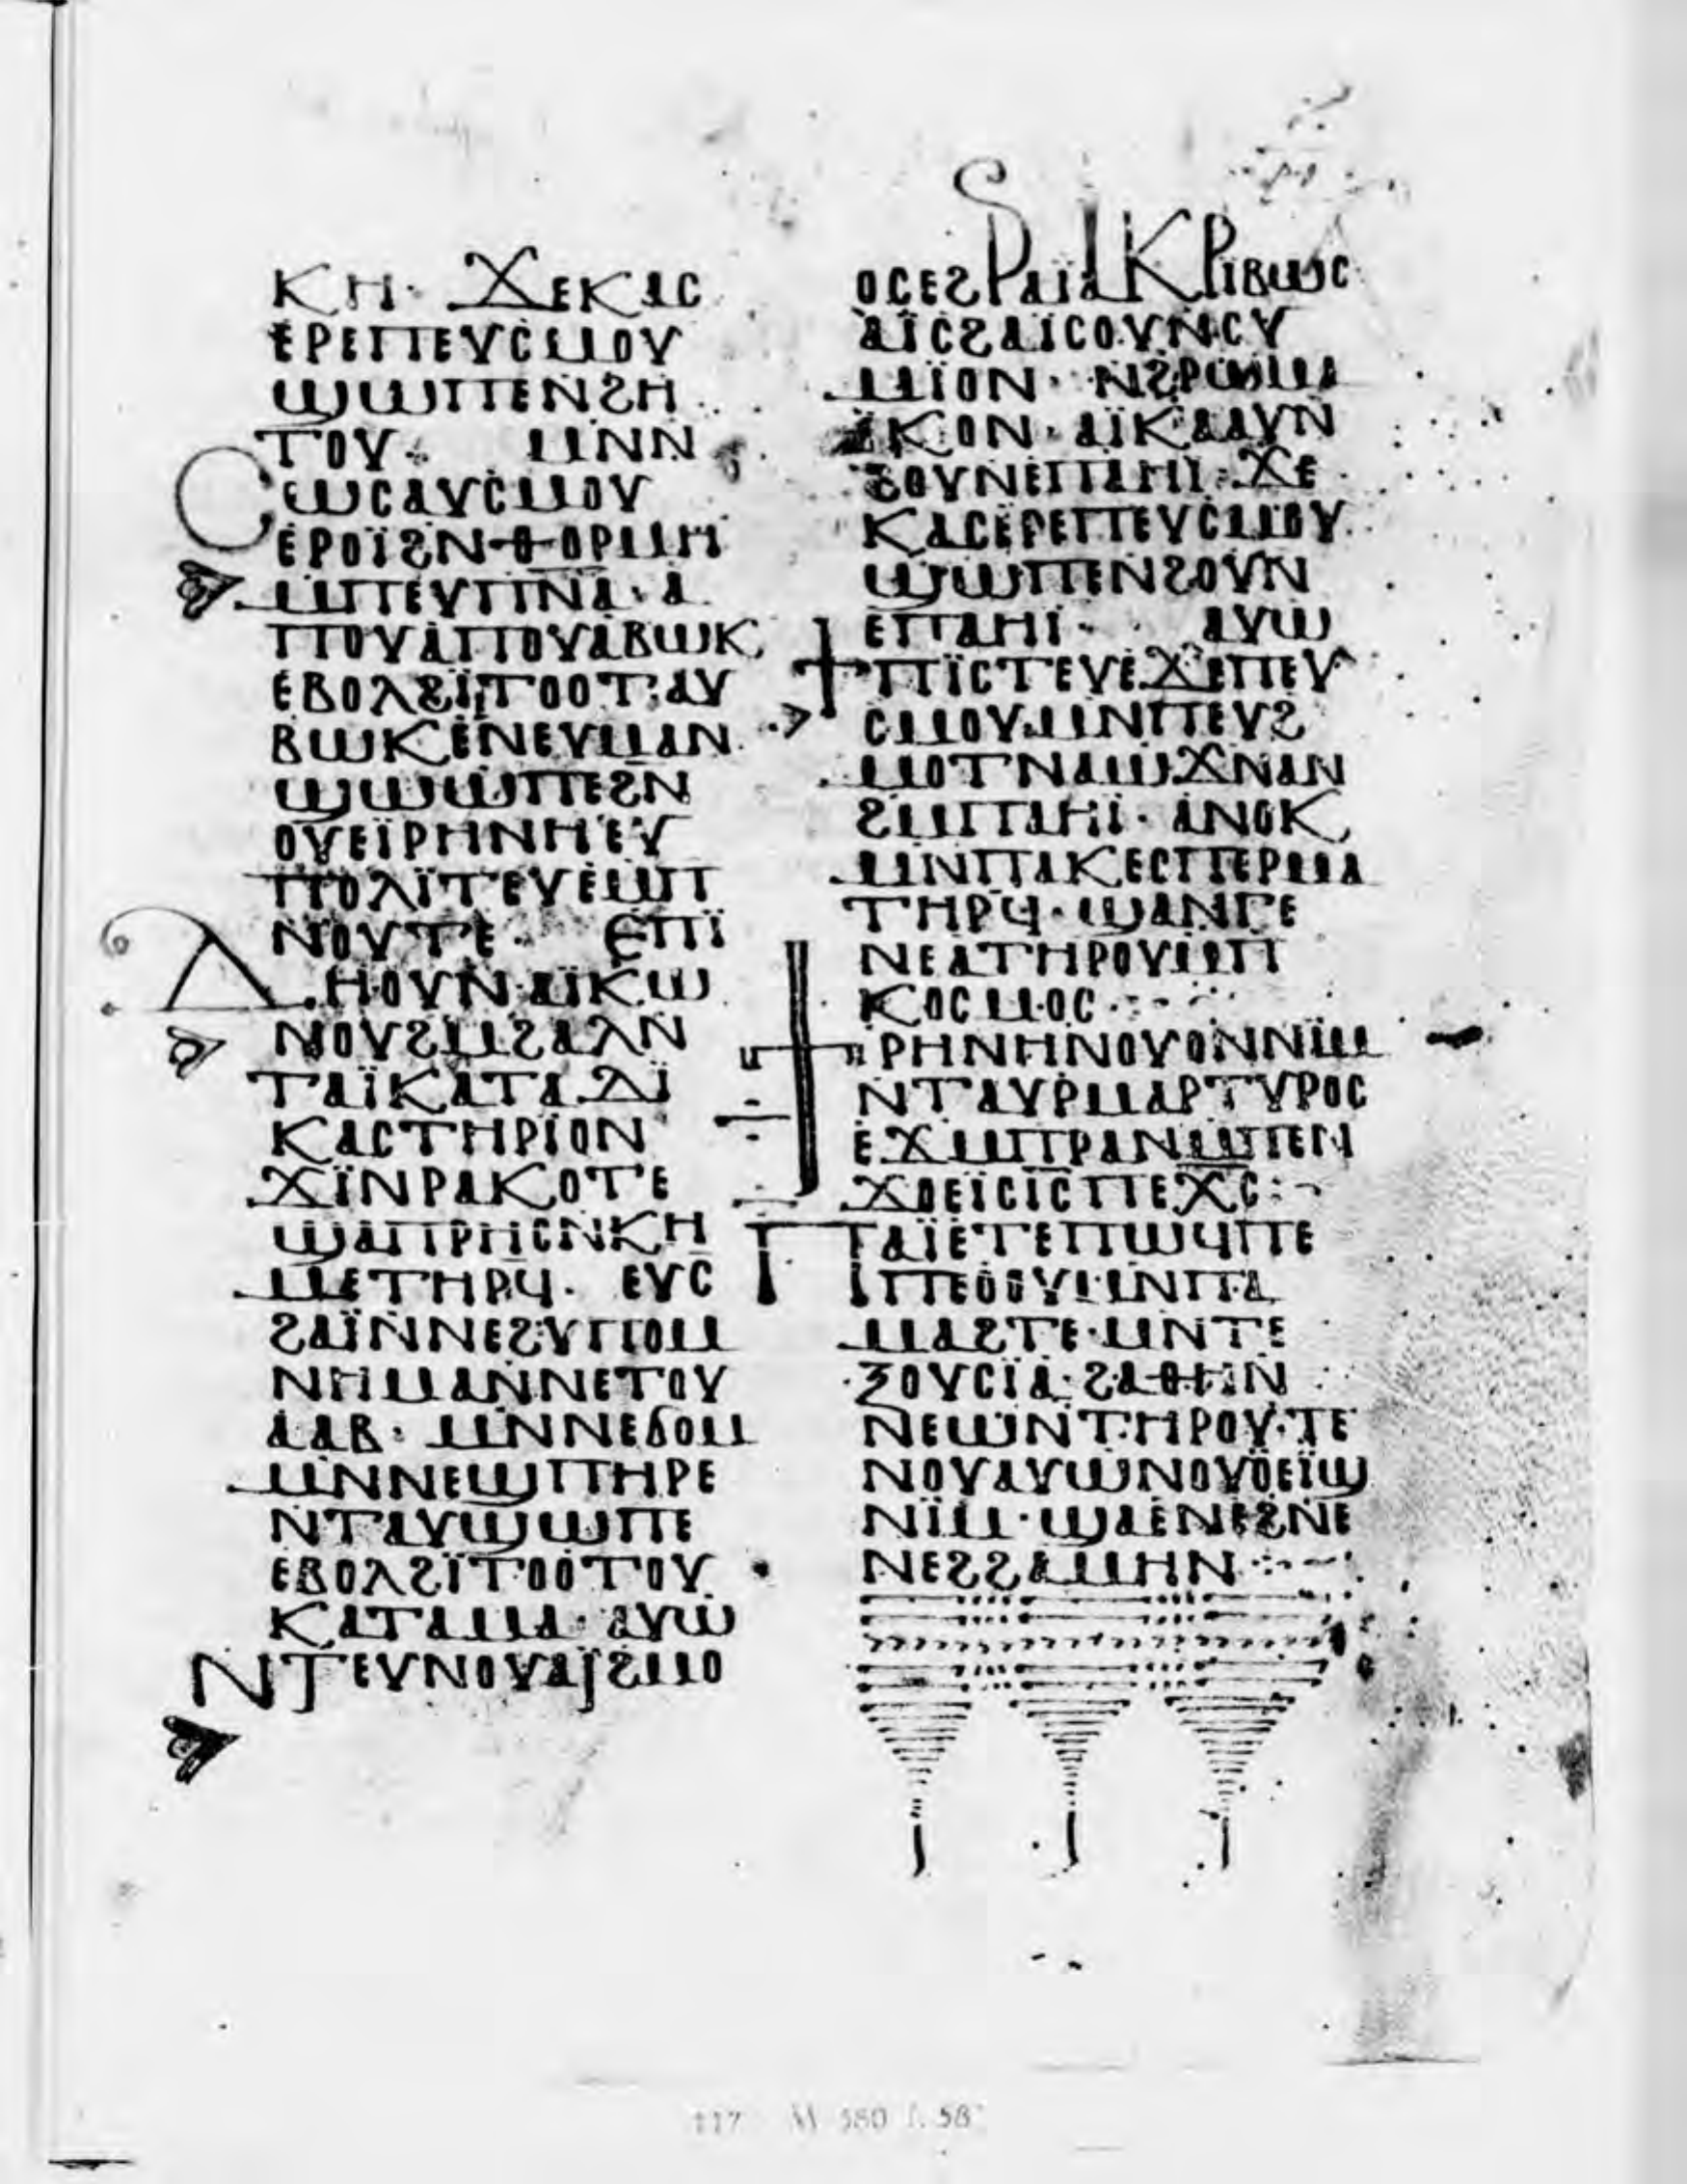 ⲕⲏ· ϫⲉⲕⲁⲥ
ⲉⲣⲉⲡⲉⲩⲥⲙⲟⲩ
ϣⲱⲡⲉⲛϩⲏ
ⲧⲟⲩ· ⲙⲛⲛ
ⲥⲱⲥⲁⲩⲥⲙⲟⲩ
ⲉⲣⲟⲓ̈ϩⲛⲑⲟⲣⲙⲏ
ⲙⲡⲉⲩⲡⲛⲁ· ⲁ
ⲡⲟⲩⲁⲡⲟⲩⲁⲃⲱⲕ
ⲉⲃⲟⲗϩⲓ̈ⲧⲟⲟⲧ· ⲁⲩ
ⲃⲱⲕⲉⲛⲉⲩⲙⲁⲛ
ϣⲱⲱⲡⲉϩⲛ
ⲟⲩⲉⲓ̈ⲣⲏⲛⲏⲉⲩ
ⲡⲟⲗⲓ̈ⲧⲉⲩⲉⲙⲡ
ⲛⲟⲩⲧⲉ· ⲉⲡⲓ̈
ⲇⲏⲟⲩⲛ·ⲁⲓ̈ⲕⲱ
ⲛⲟⲩϩⲙϩⲁⲗⲛ
ⲧⲁⲓ̈ⲕⲁⲧⲁⲇⲓ̈
ⲕⲁⲥⲧⲏⲣⲓⲟⲛ
ϫⲓ̈ⲛⲣⲁⲕⲟⲧⲉ
ϣⲁⲡⲣⲏⲥⲛⲕⲏ
ⲙⲉⲧⲏⲣϥ· ⲉⲩⲥ
ϩⲁⲓ̈ⲛⲛⲉϩⲩⲡⲟⲙ
ⲛⲏⲙⲁⲛⲛⲉⲧⲟⲩ
ⲁⲁⲃ· ⲙⲛⲛⲉϭⲟⲙ
ⲙⲛⲛⲉϣⲡⲏⲣⲉ
ⲛⲧⲁⲩϣⲱⲡⲉ
ⲉⲃⲟⲗϩⲓ̈ⲧⲟⲟⲧⲟⲩ
ⲕⲁⲧⲁⲙⲁ· ⲁⲩⲱ
ⲛⲧⲉⲩⲛⲟⲩⲁⲓϩⲙⲟ
ⲟⲥⲉϩⲣⲁⲓ̈ⲁⲕⲣⲓⲃⲱⲥ
ⲁⲓ̈ⲥϩⲁⲓ̈ⲥⲟⲩⲛⲥⲩ
ⲙⲓ̈ⲟⲛ· ⲛϩⲣⲱⲙⲁ
ⲓ̈ⲕⲟⲛ· ⲁⲓ̈ⲕⲁⲁⲩⲛ
ϩⲟⲩⲛⲉⲡⲁⲏⲓ· ϫⲉ
ⲕⲁⲥⲉⲣⲉⲡⲉⲩⲥⲙⲟⲩ
ϣⲱⲡⲉⲛϩⲟⲩⲛ
ⲉⲡⲁⲏⲓ· ⲁⲩⲱ
ϯⲡⲓ̈ⲥⲧⲉⲩⲉϫⲉⲡⲉⲩ
ⲥⲙⲟⲩⲙⲛⲡⲉⲩϩ
ⲙⲟⲧⲛⲁⲱϫⲛⲁⲛ
ϩⲙⲡⲁⲏⲓ̈· ⲁⲛⲟⲕ
ⲙⲛⲡⲁⲕⲉⲥⲡⲉⲣⲙⲁ
ⲧⲏⲣϥ· ϣⲁⲛⲅⲉ
ⲛⲉⲁⲧⲏⲣⲟⲩⲙⲡ
ⲕⲟⲥⲙⲟⲥ·
ϯⲣⲏⲛⲏⲛⲟⲩⲟⲛⲛⲓ̈ⲙ
ⲛⲧⲁⲩⲣⲙⲁⲣⲧⲩⲣⲟⲥ
ⲉϫⲙⲡⲣⲁⲛⲙⲡⲉⲛ
ϫⲟⲉⲓ̈ⲥⲓ̈ⲥⲡⲉⲭⲥ:
ⲡⲁⲓ̈ⲉⲧⲉⲡⲱϥⲡⲉ
ⲡⲉⲟⲟⲩⲙⲛⲡⲁ
ⲙⲁϩⲧⲉ·ⲙⲛⲧⲉ
ⲝⲟⲩⲥⲓ̈ⲁ· ϩⲁⲑⲏⲛ
ⲛⲉⲱⲛⲧⲏⲣⲟⲩ·ⲧⲉ
ⲛⲟⲩⲁⲩⲱⲛⲟⲩⲟⲉⲓ̈ϣ
ⲛⲓ̈ⲙ· ϣⲁⲉⲛⲉϩⲛⲉ
ⲛⲉϩϩⲁⲙⲏⲛ
117 M 580 f. 58